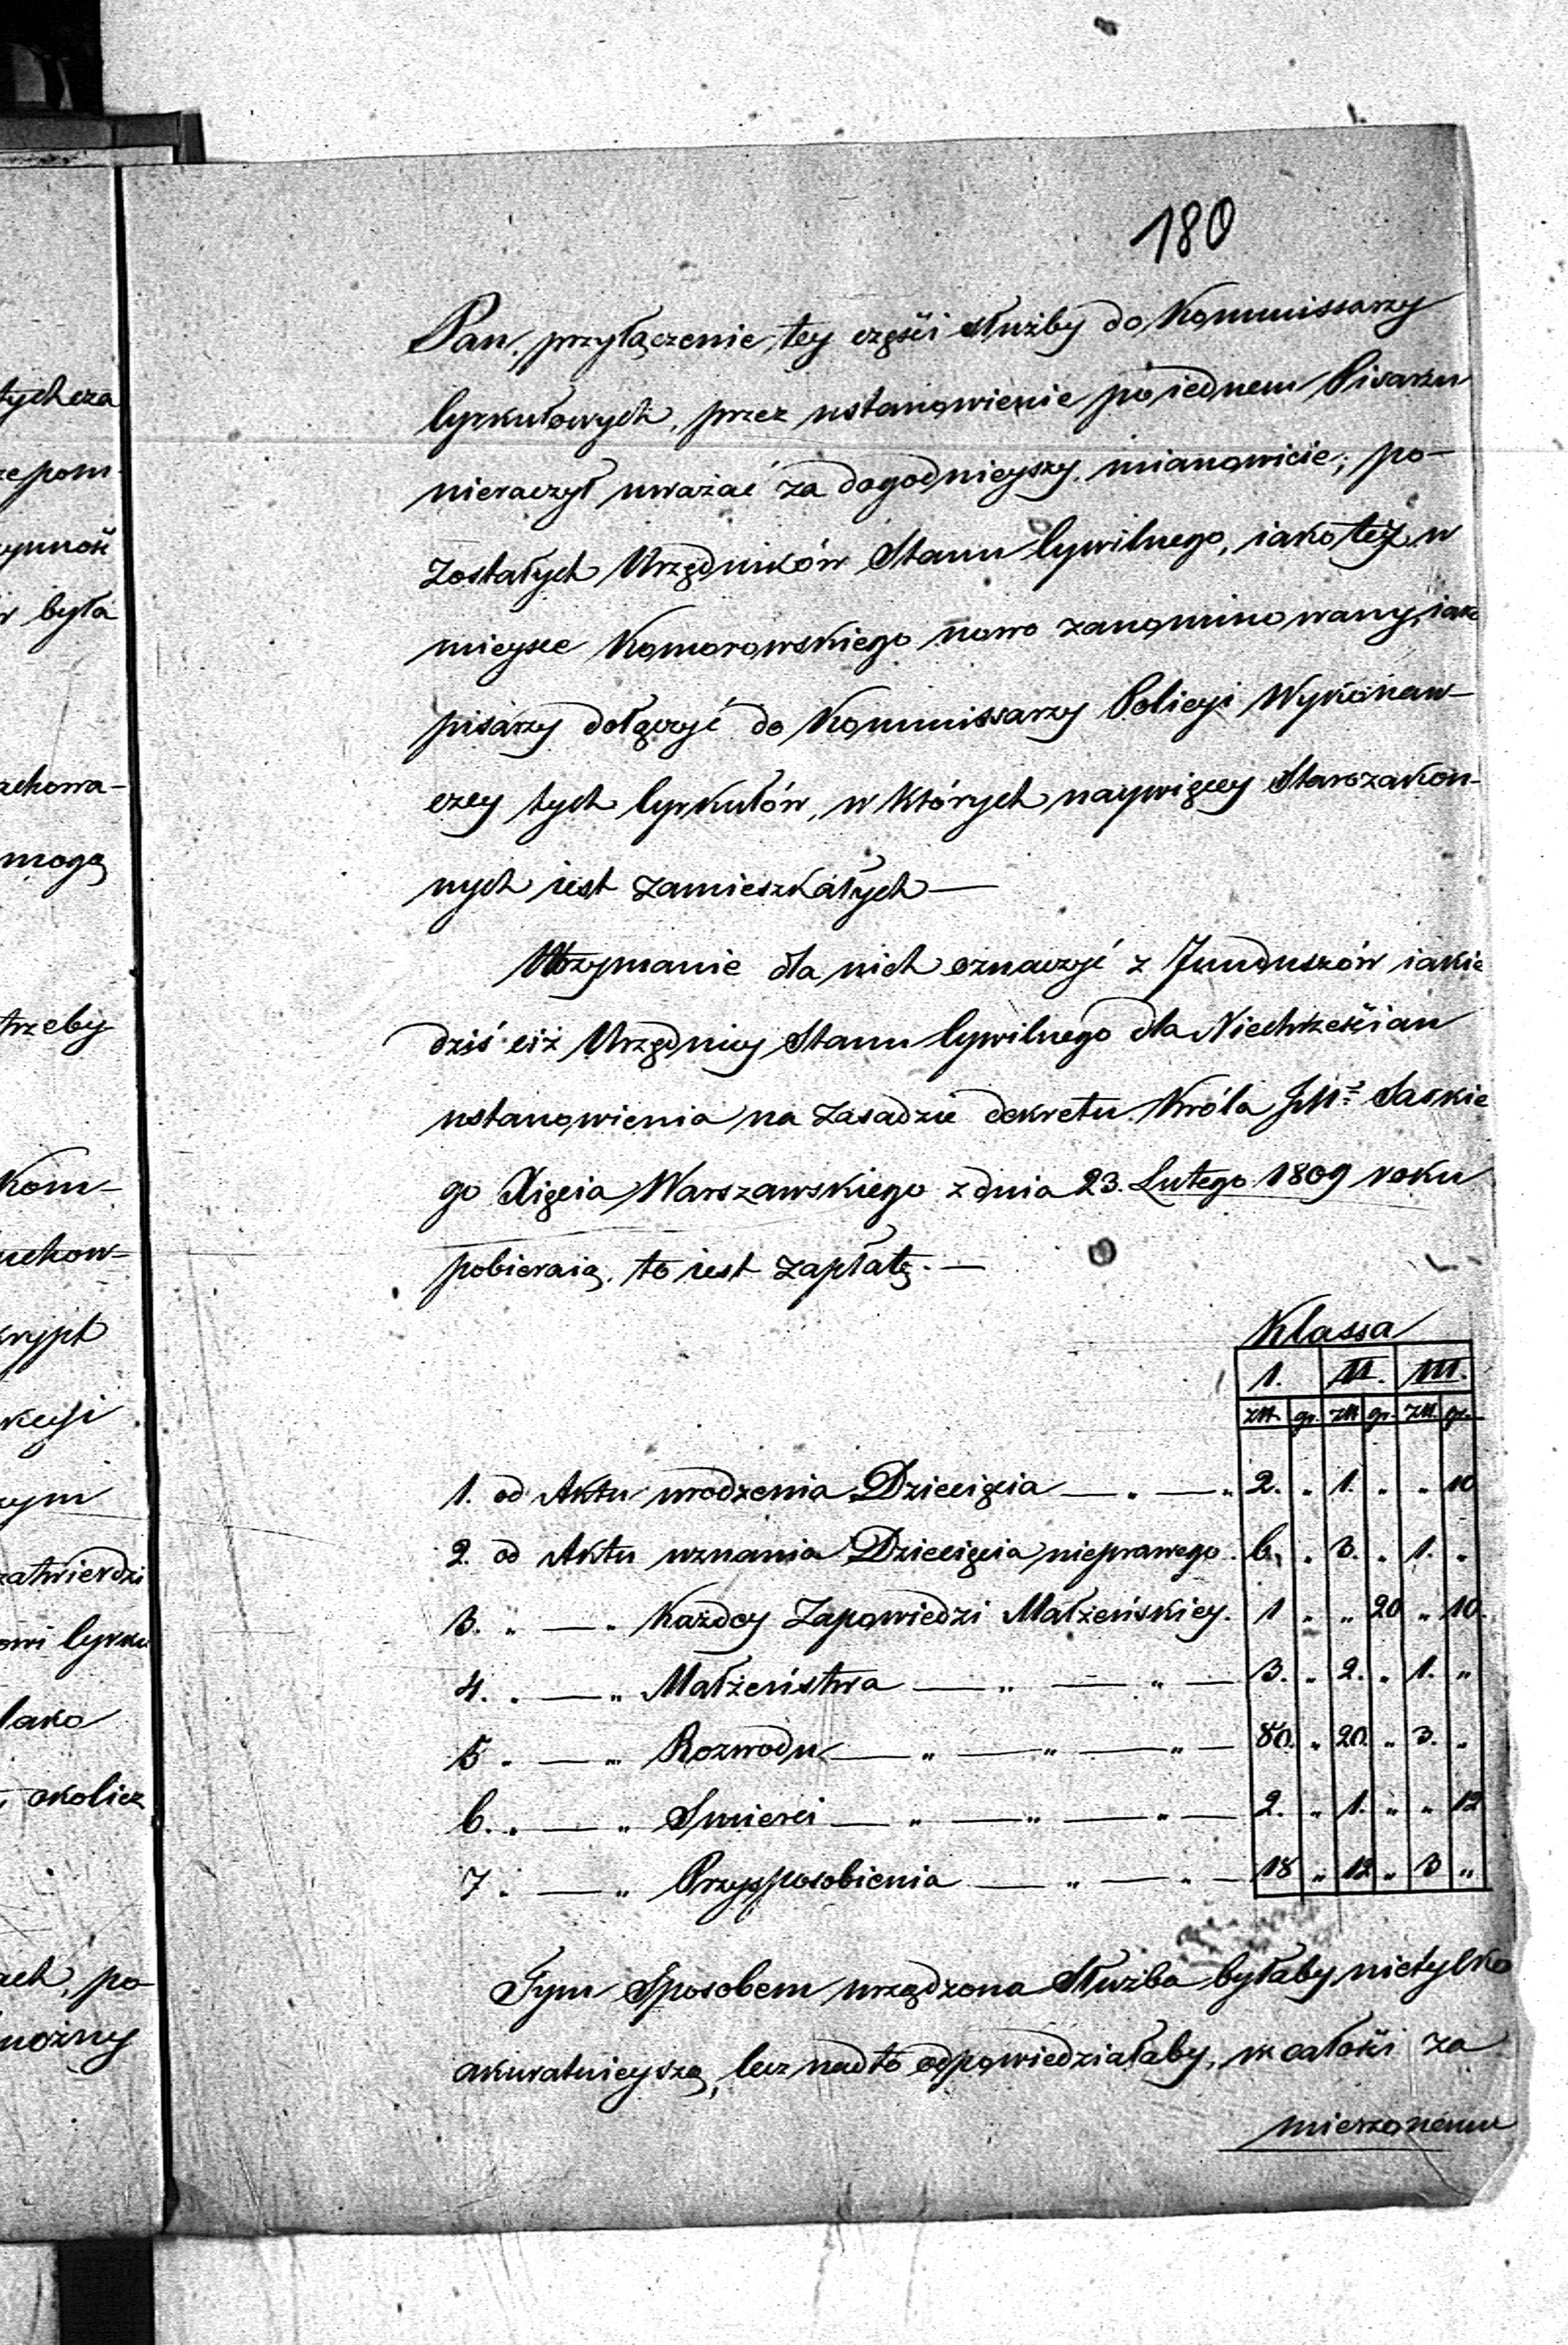 180
Pan, przyłączenie tey części służby do Kommissarzy
Cyrkułowych, przez ustanowienie po iednem Pisarzu
nieraczył uważać za dogodnieyszy, mianowicie; po-
zostałych Urzędników Stanu Cywilnego, iako też w
mieysce Komorowskiego nowo zanominowany, iako
pisarzy dołączyć do Kommissarzy Policyi Wykonaw-
czey tych Cyrkułów, w których naywięcey Starozakon-
nych iest zamieszkałych —
Utrzymanie dla nich oznaczyć z Funduszów iakie
dziś ciż Urzędnicy Stanu Cywilnego dla Niechrześcian
ustanowienia na zasadzie dekretu Króla JMci Saskie
go Xięcia Warszawskiego z dnia 23. Lutego 1809 roku
pobieraią, to iest zapłatę. —
Klassa
1. II. III.
złł. gr. złł gr. złł. gr.
1. od Aktu urodzenia Dziecięcia — „ — „ 2. „ 1. „ „ 10
2. od Aktu uznania Dziecięcia nieprawego. 6. „ 3. „ 1. „
3. „ — „ Każdey Zapowiedzi Małżeńskiey. 1 „ „ 20 „ 10.
4. „ — „ Małżeństwa — „ — „ — 3. „ 2. „ 1. „
5 „ — „ Rozwodu — „ — „ — „ — 80. „ 20. „ 3. „
6. „ — „ Smierci — „ — „ — „ — 2. „ 1. „ „ 12
7 „ — „ Przysposobienia — „ — „ — 18 „ 12 „ 3 „
Tym Sposobem urządzona Służba byłaby nietylko
akuratnieyszą, lecz nadto odpowiedziałaby, w całości za
mierzonemu
tychcza
rzepom-
zynność
w była
achowa-
mogą
trzeby
Kom-
uchow-
krypt
kcyi
zym
zatwierdzi
owi Cyrku
lako
, okolicz
ach, po-
możny